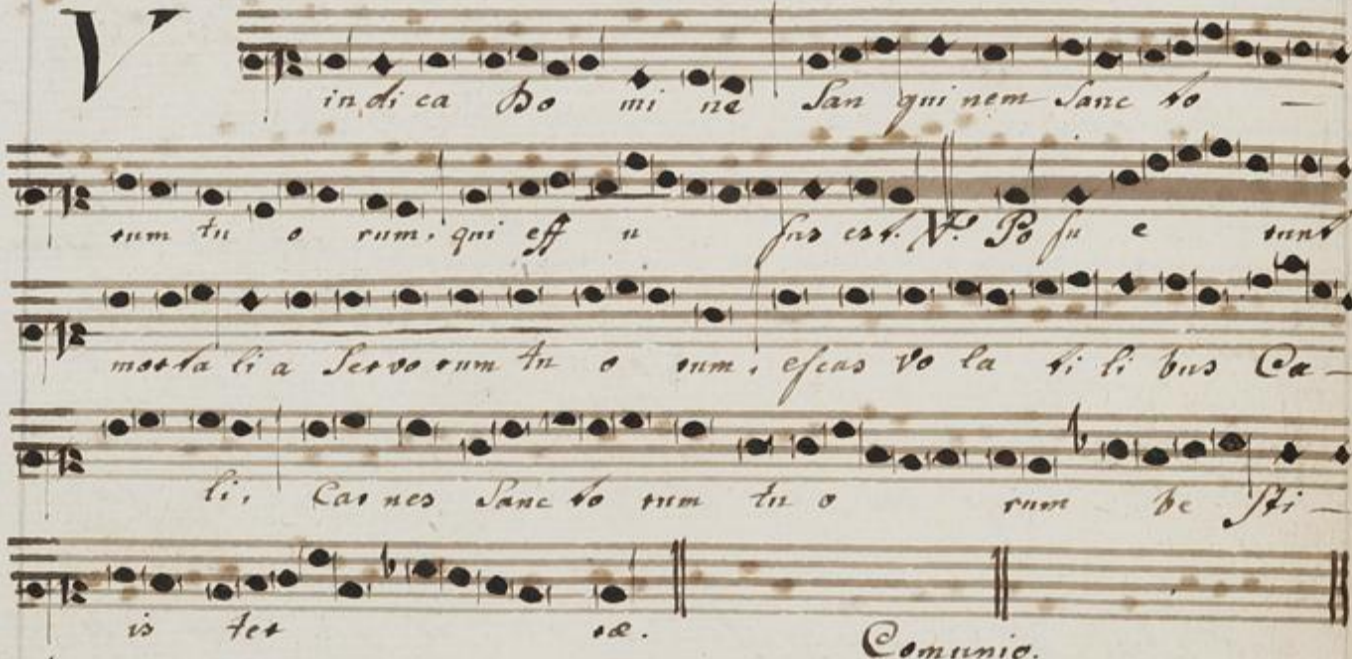 V in di ca Do mi ne San gui nem Sanc to —
rum tu o rum. qui eff u sus est. V. Po su e runt
morta li a Servo rum tu o rum. escas vo la ti li bus Cæ —
li, Carnes Sanc to rum tu o rum be sti —
is ter ræ.
Comunio.